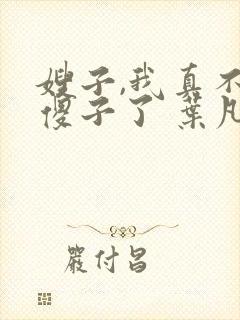 嫂子,我真不
傻子了 葉凡
嚴付昌